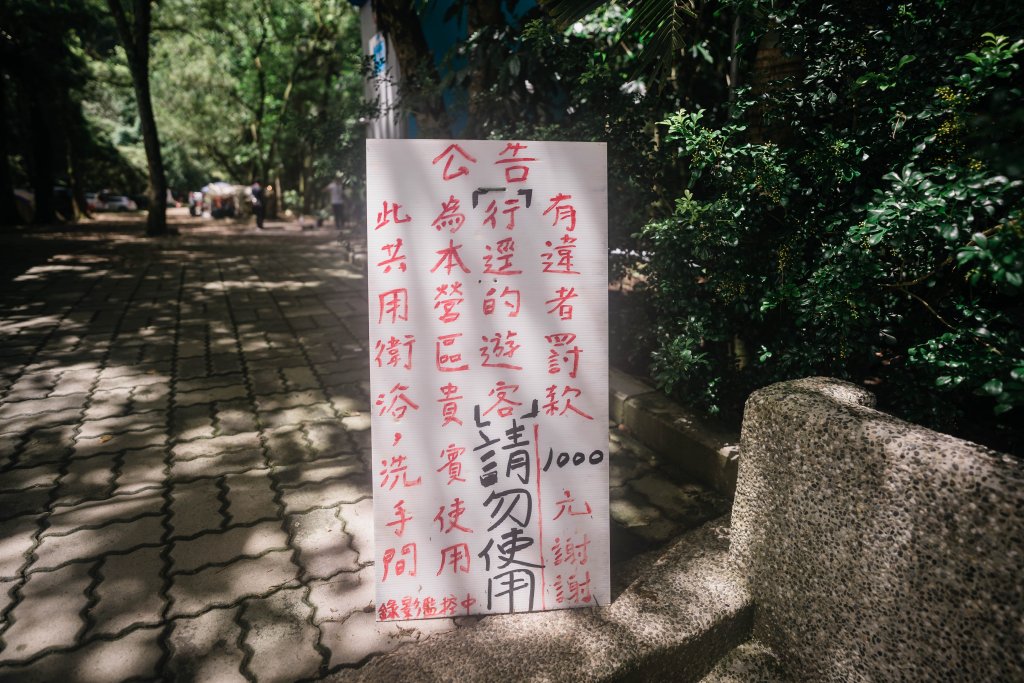 公告
此共用衛浴，洗手間
為本營區貴賓使用
「行逕的遊客」請勿使用
有違者罰款1000元謝謝
錄影監控中